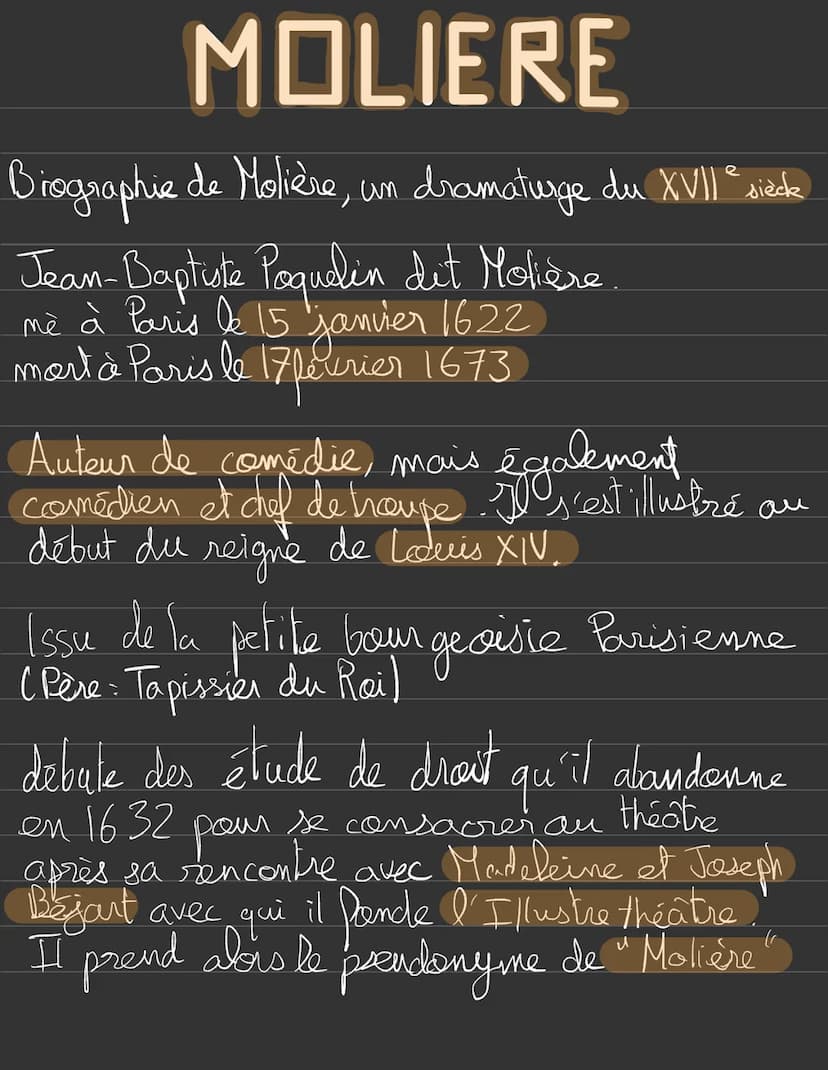 MOLIERE
Biographie de Molière, un dramaturge du XVIIe siècle
Jean-Baptiste Poquelin dit Molière.
nè à Paris le 15 janvier 1622
mort à Paris le 17 février 1673
Auteur de comédie, mais également
comédien et chef de troupe. Il s'est illustré au
début du reigne de Louis XIV.
Issu de la petite bourgeoisie Parisienne
(Père : Tapissier du Roi)
débute des étude de droit qu'il abandonne
en 1632 pour se consacrer au théâtre
après sa rencontre avec Madeleine et Joseph
Béjart avec qui il fonde l'Illustre théâtre.
Il prend alors le pseudonyme de "Molière"